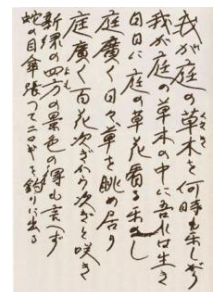 我が庭の草木を何時も楽しがり
我が庭の草木の中に吾れは生き
日日に庭の草花看る楽し
庭廣く日々草を眺め居り
庭廣く百花次ぎから次ぎと咲き
新緑の四方の景色の得も言へず
蛇の目傘張つてニコヤを釣りに出る